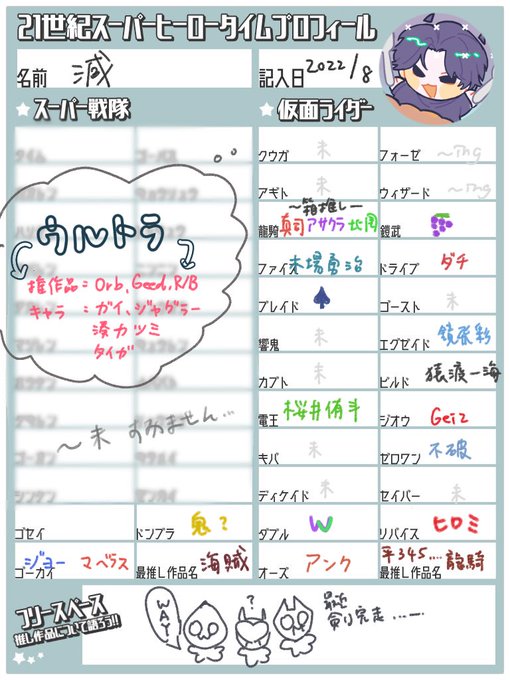 21世紀スーパーヒーロータイムプロフィール
名前 減
記入日 2022/8
スーパー戦隊
仮面ライダー
ウルトラ
推作品：Orb, Geed, R/B
キャラ：ガイ、ジャグラー
湊カツミ
タイガ
〜未 すみません…
ゴセイ
ドンブラ 鬼？
ゴーカイ ジョー マベラス
最推し作品名 海賊
クウガ 未
フォーゼ 〜ing
アギト 未
ウィザード 〜ing
〜箱推し〜
龍騎 真司 アサクラ 北岡
鎧武
ファイ 木場勇治
ドライブ ダチ
ブレイド
ゴースト 未
響鬼 未
エグゼイド 鏡飛彩
カブト 未
ビルド 猿渡一海
電王 桜井侑斗
ジオウ Geiz
キバ 未
ゼロワン 不破
ディケイド 未
セイバー 未
ダブル W
リバイス ヒロミ
オーズ アンク
最推し作品名 平345.... 龍騎
フリースペース
推し作品について語ろう!!
WAY!
?
最近
剣り完走……